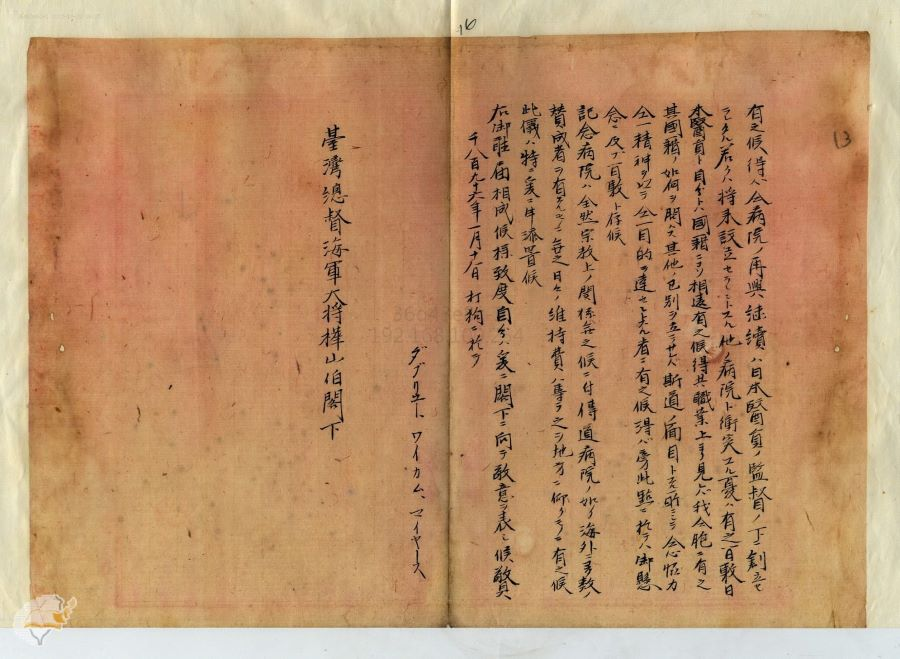 16
13
有之候得バ仝病院ノ再興継續ハ日本醫員ノ監督ノ下ニ創立セ
ラレタル若クハ将来設立セラレントスル他ノ病院ト衝突スル憂ハ有之間敷日
本醫員ト自分トハ國籍コソ相違有之候得共職業上ヨリ見レバ我仝胞ニ有之
其國籍ノ如何ヲ問ハズ其他ノ色別ヲ立ニサズ斯道ノ面目トスル所ニシテ仝心協力
仝一精神ヲ以テ仝一目的ヲ達セントスル者ニ有之候得バ旁此點ニ於テハ御懸
念ニ及ブ間敷ト存候
記念病院ハ全然宗教上ノ関係無之候ニ付傳道病院ノ如ク海外ニ多数ノ
賛成者ヲ有スルコトモ無之日々ノ維持費ハ専ラ之ヲ地方ニ仰クモノニ有之候
此儀ハ特ニ爰ニ申添置候
右御聴届相成候様致度自分ハ爰ニ閣下ニ向テ敬意ヲ表シ候敬具
千八百九十六年一月十六日 打狗ニ於テ
ダブリユー、ワイカム、マイヤース
臺灣總督海軍大将樺山伯閣下